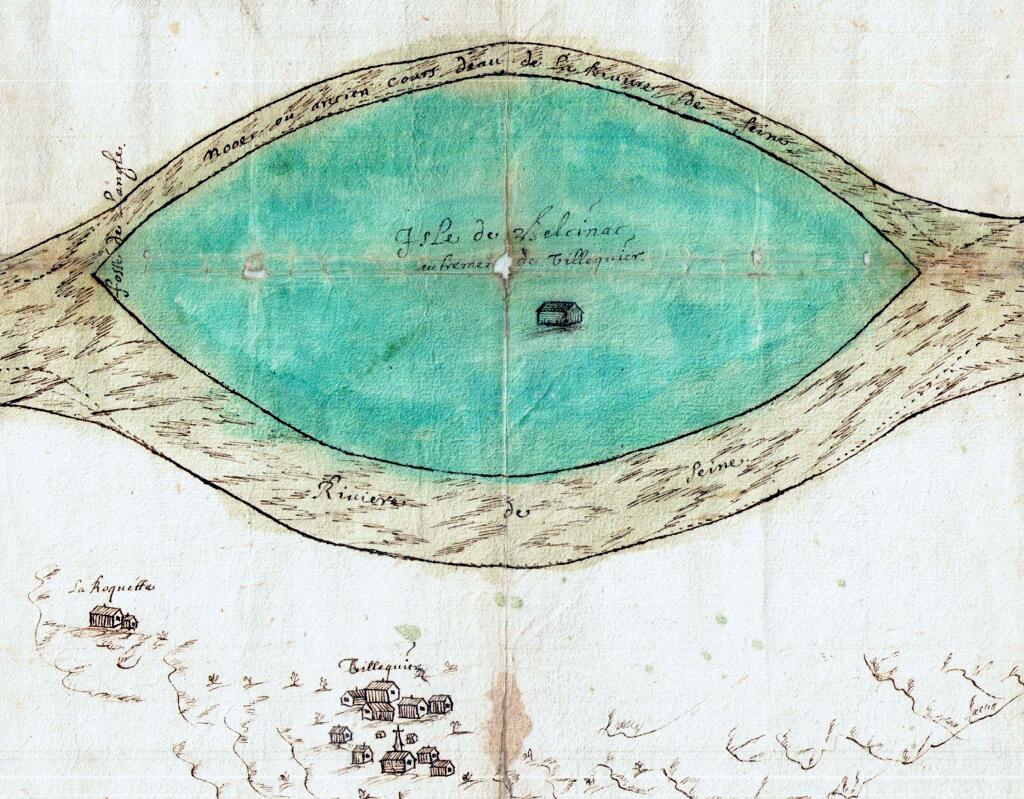 nooe ou ancien cours deau de La Riviere de Seine
fossé de Langle.
Isle de Belcinac
de Villequier.
Riviere de Seine
La Roquette
Villequier